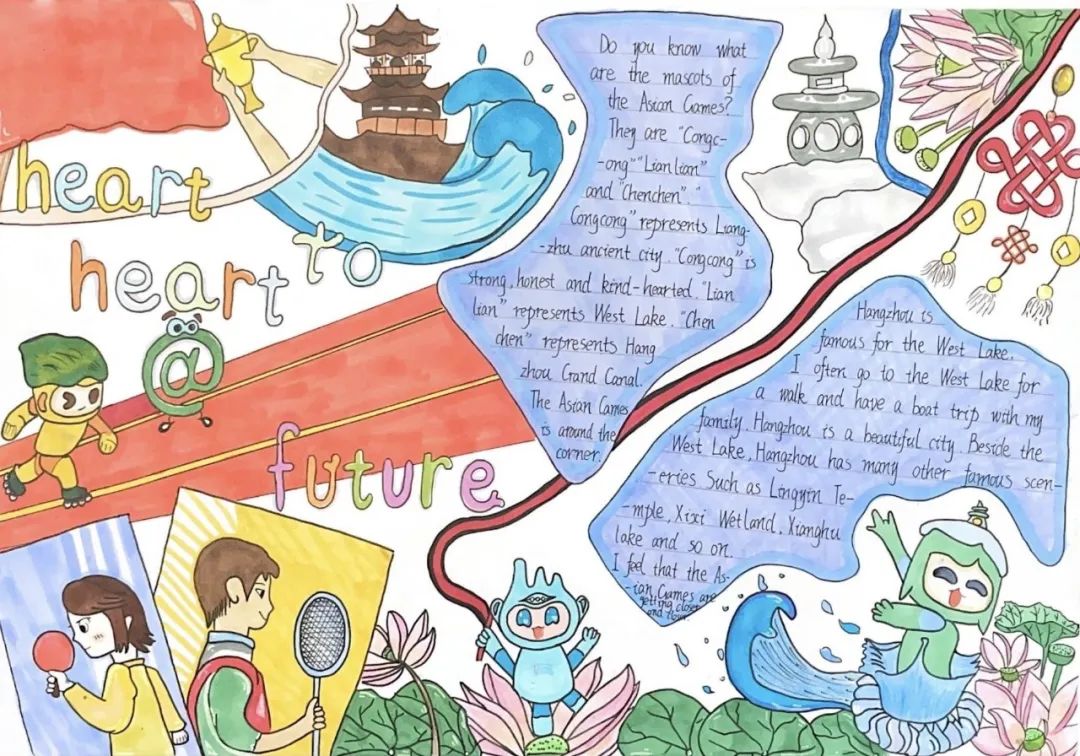 heart
heart to
@
future
Do you know what
are the mascots of
the Asian Games?
They are "Congc-
-ong" "Lianlian"
and "Chenchen". "
Congcong" represents Liang-
-zhu ancient city. "Congcong" is
strong, honest and kind-hearted. "Lian
lian" represents West Lake. "Chen
chen" represents Hang
zhou Grand Canal.
The Asian Games
is around the
corner.
Hangzhou is
famous for the West Lake.
I often go to the West Lake for
a walk and have a boat trip with my
family. Hangzhou is a beautiful city. Beside the
West Lake, Hangzhou has many other famous scen-
-eries Such as Lingyin Te-
-mple, Xixi Wetland, Xianghu
lake and so on.
I feel that the As-
-ian Games are
getting closer
and